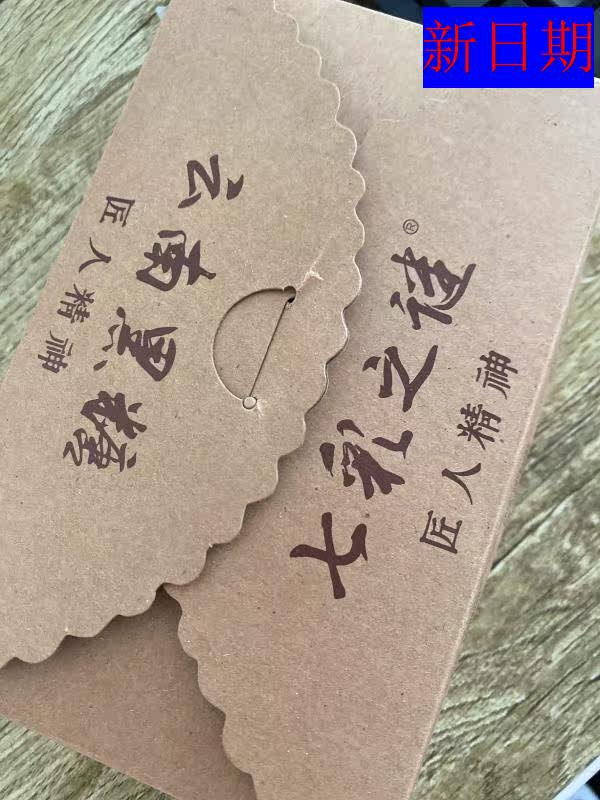 新日期
云南黑糖
匠人精神
七彩之®
匠人精神